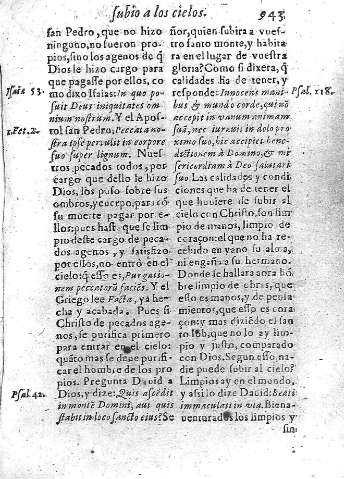 subio a los cielos. 943
san Pedro, que no hizo
ninguno, no fueron pro-
pios, sino los agenos de q̃
Dios le hizo cargo para
que pagasse por ellos, co-
mo dixo Isaias: In quo po-
suit Deus iniquitates om
nium nostrum. Y el Apos-
tol san Pedro, Peccata no-
stra ipse pertulit in corpore
suo super lignum. Nues-
tros pecados todos, por
cargo que dello le hizo
Dios, los puso sobre sus
ombros, y cuerpo, para cõ
su muerte pagar por e-
llos: pues hasta que se lim
pio deste cargo de peca-
dos agenos, y satisfizo
por ellos, no entrò en el
cielo: q̃ esso es, Purgatio-
nem peccatorũ faciẽs. Y el
Griego lee Facta, ya he-
cha y acabada. Pues si
Christo de pecados age-
nos, se purifica primero
para entrar en el cielo:
quãto mas se deue purifi-
car el hombre de los pro
pios. Pregunta Dauid a
Dios, y dize: Quis ascẽdit
in montẽ Domini, aut quis
stabit in loco sancto eius? Se
Isaiæ 53.
1.Pet.2.
Psal.42.
ñor, quien subira a vues-
tro santo monte, y habita
ra en el lugar de vuestra
gloria? Como si dixera, q̃
calidades ha de tener, y
responde: Innocens mani-
bus & mundo corde, qui nõ
accepit in vanum animam
suã, nec iurauit in dolo pro
ximo suo, hic accipiet bene-
dictionem à Domino, & mi
sericordiam à Deo salutari
suo. Las calidades y condi
ciones que ha de tener el
que huuiere de subir al
cielo con Christo, son lim
pio de manos, limpio de
coraçon: el que no ha re-
cebido en veno su alma,
ni engaña a su hermano.
Donde se hallara aora hõ
bre limpio de obras, que
esso es manos, y de pensa
miento, que esso es cora
çon: y mas diziẽdo el san
to Iob, que no lo ay lim-
pio y justo, comparado
con Dios. Segun esso, na-
die puede subir al cielo?
Limpios ay en el mundo,
y assi lo dize Dauid: Beati
immaculati in via. Biena-
uenturados los limpios y
sin
Psal.118.